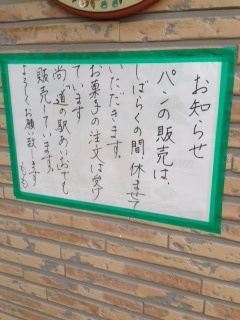 お知らせ
パンの販売は、
しばらくの間、休ませて
いただきます。
お菓子の注文は受け
ています
尚、道の駅あいおでも
販売しています。
よろしくお願い致します
もも